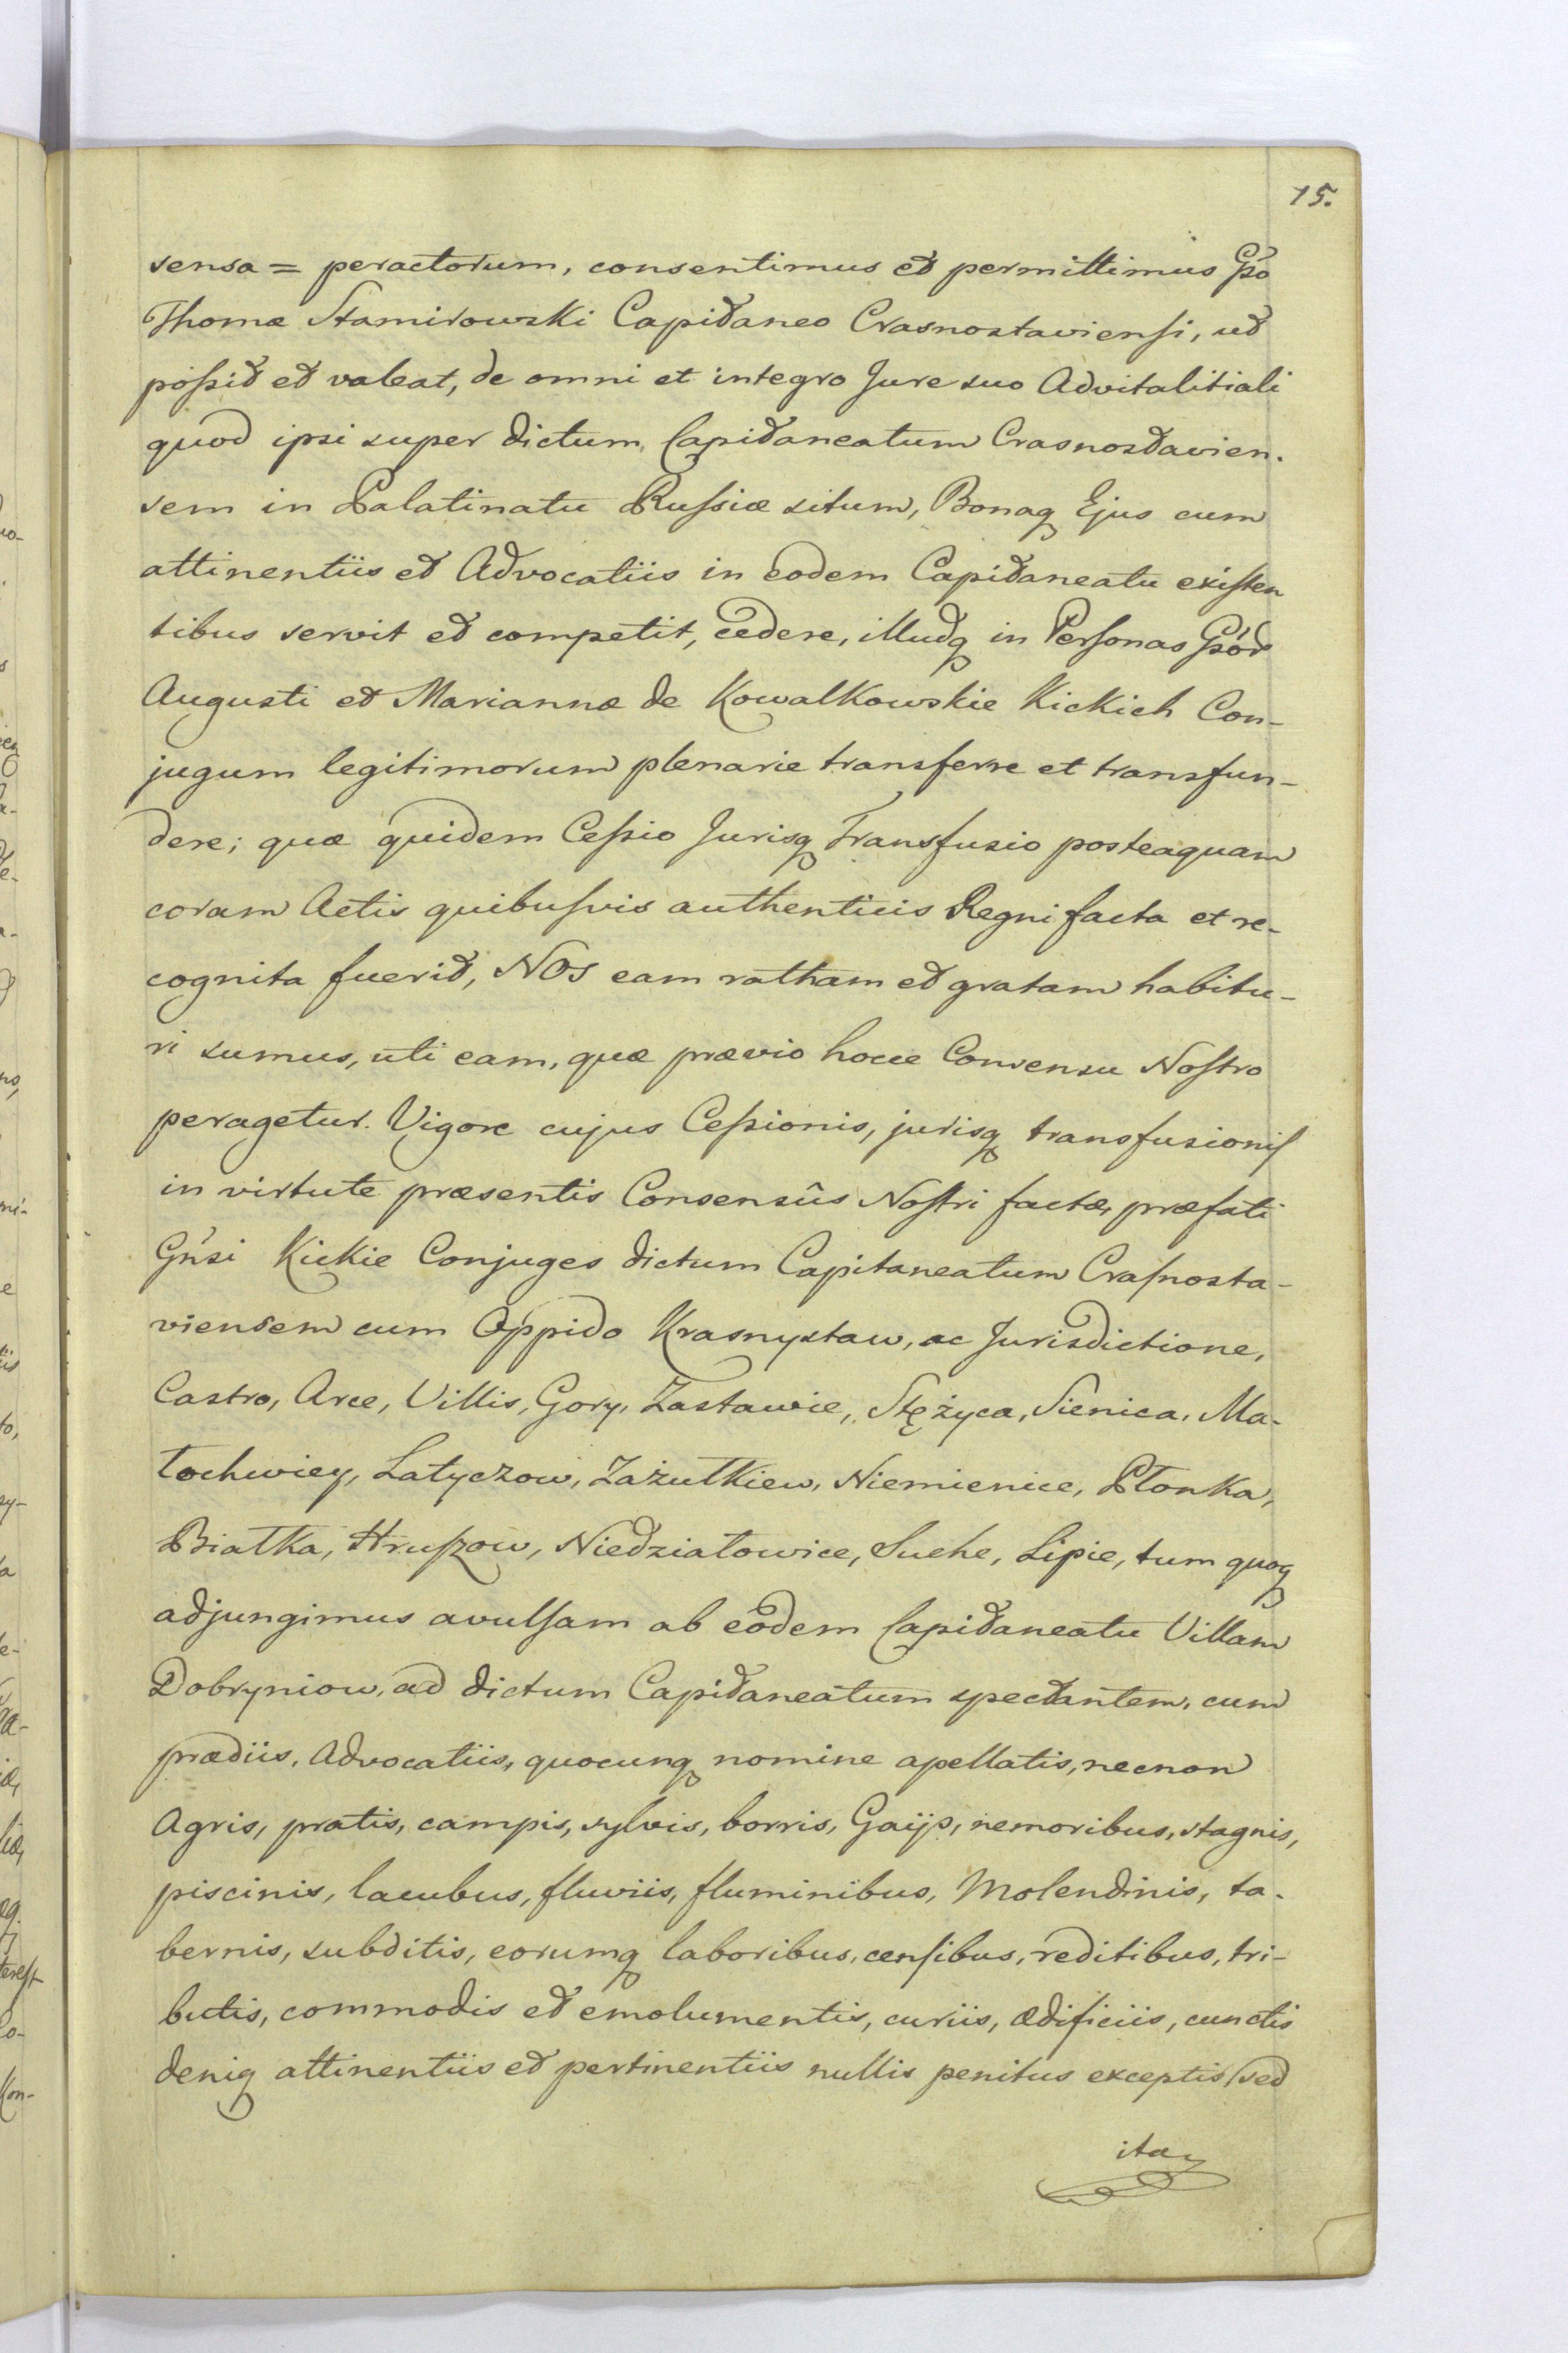 15.
sensa = peractorum, consentimus et permittimus Gso
Thomæ Stamirowski Capitaneo Crasnostaviensi, ut
possit et valeat, de omni et integro Jure suo Advitalitiali
quod ipsi super dictum Capitaneatum Crasnostavien.
sem in Palatinatu Russiæ situm, Bonaq Ejus cum
attinentiis et Advocatiis in eodem Capitaneatu existen
tibus servit et competit, cedere, illudq in Personas Gsór
Augusti et Mariannæ de Kowalkowskie Kickich Con-
jugum legitimorum plenarie transferre et transfun-
dere; quæ quidem Cessio Jurisq Transfusio posteaquam
coram Actis quibusvis authenticis Regni facta et re-
cognita fuerit, NOS eam ratham et gratam habitu-
ri sumus, uti eam, quæ prævio hocce Consensu Nostro
peragetur. Vigore cujus Cessionis, jurisq transfusionis
in virtute præsentis Consensûs Nostri factæ, præfati
Gńsi Kickie Conjuges dictum Capitaneatum Crasnosta-
viensem cum Oppido Krasnystaw, ac Jurisdictione,
Castro, Arce, Villis, Gory, Zastawie, Stężyca, Sienica, Ma-
łochwiey, Latyczow, Zażułkiew, Niemienice, Płonka,
Białka, Hruszow, Niedziałowice, Suche, Lipie, tum quoq
adjungimus avulsam ab eodem Capitaneatu Villam
Dobryniow, ad dictum Capitaneatum spectantem, cum
prædiis, Advocatiis, quocunq nomine apellatis, necnon
Agris, pratis, campis, sylvis, borris, Gaijs, nemoribus, stagnis,
piscinis, lacubus, fluviis, fluminibus, Molendinis, ta-
bernis, subditis, eorumq laboribus, censibus, reditibus, tri-
butis, commodis et emolumentis, curiis, ædificiis, cunctis
deniq attinentiis et pertinentiis nullis penitus exceptis, sed
ita